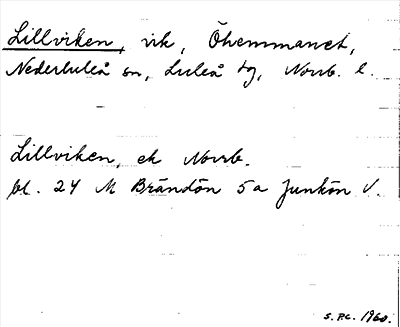 Lillviken, vik, Öhemmanet,
Nederluleå sn, Luleå tg, Norrb. l.
Lillviken, ek Norrb.
bl. 24 M Brändön 5a Junkön V.
S. Pc. 1960.